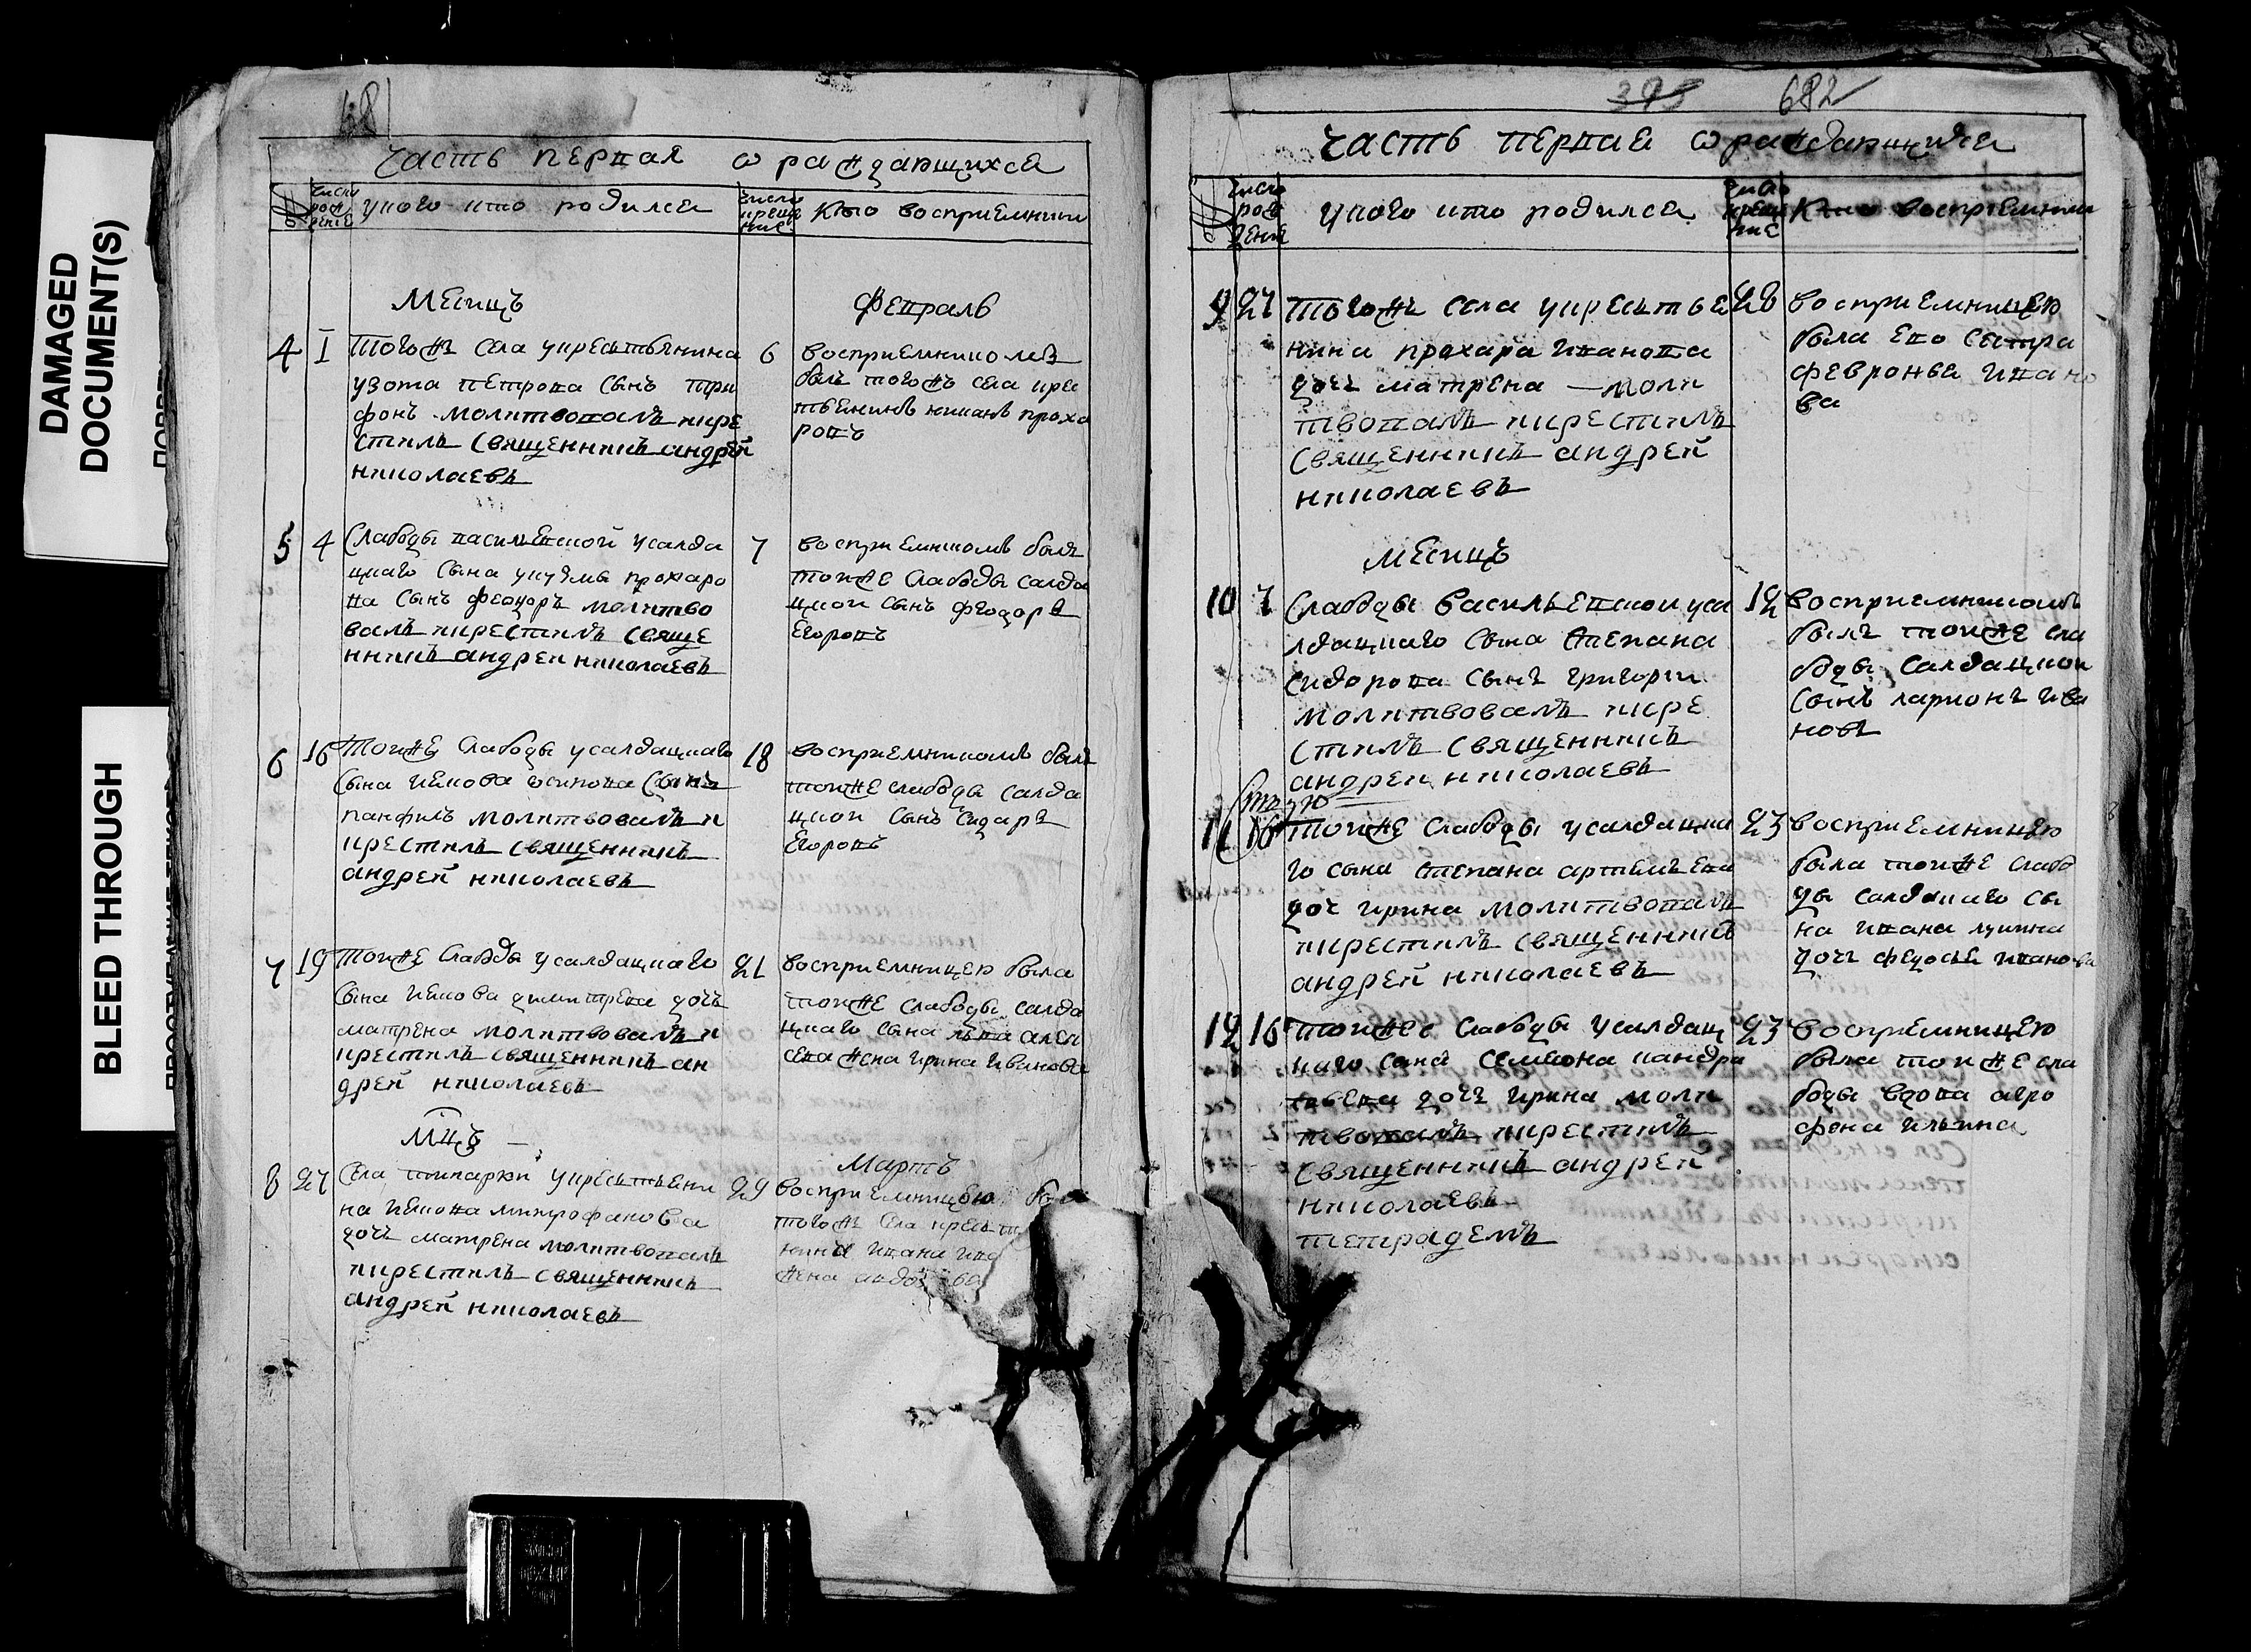 DAMAGED
DOCUMENT(S)
BLEED THROUGH
681
часть первая ѡ раждающихся
число рождение
у кого кто родился
число крещение
кто восприемники
Месицъ
Февраль
4 1 тогожъ села у крестьянина
узота петрова сынъ три
фонъ молитвовалъ и кре
стилъ священникъ андрей
николаевъ
6 восприемникомъ
былъ тогожъ села кре
тьенинъ прохо
ровъ
5 4 слабоды василевской у салда
цкаго сына у кузмы прохаро
ва сынъ феодоръ молитво
валъ и крестилъ свяще
нникъ андреи николаевъ
7 восприемникомъ былъ
тои же слабоды салда
цкои сынъ феодоръ
егоровъ
6 16 тои же слабоды у салдацкаго
сына иякова осипова сынъ
панфилъ молитвовалъ и
крестилъ священникъ
андрей николаевъ
18 восприемникомъ былъ
тои же слабоды салда
цкои сынъ сидаръ
егоровъ
7 19 тои же слабды у салдацкаго
сына иякова димитрева дочь
матрена молитвовалъ и
крестилъ священникъ ан
дрей николаевъ
21 восприемницею была
тои же слабоды салда
цкаго сына алек
сева жена ирина иванова
мцъ
Мартъ
8 27 села у крестьени
на иякова митрофанова
дочь матрена молитвовалъ
и крестилъ священникъ
андрей николаевъ
29 восприемницею
тогожъ села крест
нина ивана
жена
395 682
часть первая ѡ раждающихся
число рождение
у кого кто родился
число крещение
кто восприемники
9 27 тогожъ села у крестье
нина прохара иванова
дочь матрена моли
твовалъ и крестилъ
священникъ андрей
николаевъ
28 восприемницею
была ево сестра
февронья ивано
ва
месицъ
10 7 слабоды васильевскои у са
лдацкаго сына степана
сидорова сынъ григории
молитвовалъ и кре
стилъ священникъ
андреи николаевъ
12 восприемникомъ
былъ тои же сла
боды салдацкои
сынъ ларионъ ива
новъ
11 16 тои же слабоды у салдацка
го сына степана артемьева
доч ирина молитвовалъ
и крестилъ священникъ
андрей николаевъ
23 восприемницею
была тои же слабо
ды салдацкаго сы
на ивана
дочь федосья иванова
12 16 тои же слабоды у салдац
каго сына семиона кандра
тьева дочь ирина моли
твовалъ и крестилъ
священникъ андрей
николаевъ
тетрадемъ
23 восприемницею
была тои же сла
боды вдова агро
фена ильина